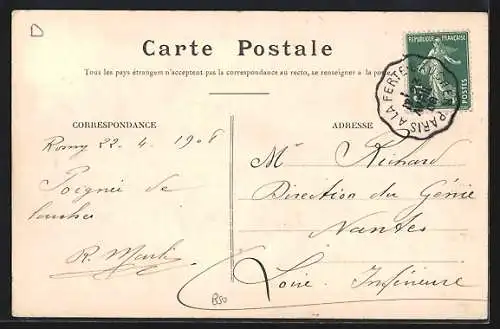 D
Carte Postale
Tous les pays étrangers n'acceptent pas la correspondance au recto, se renseigner à la poste
RÉPUBLIQUE FRANÇAISE
POSTES
PARIS A LA FERTE-MILON
CORRESPONDANCE
ADRESSE
22-4-1908
Poignée de
M. Richard
Direction du Génie
Nantes
R. Marti
Loire Inférieure
B50